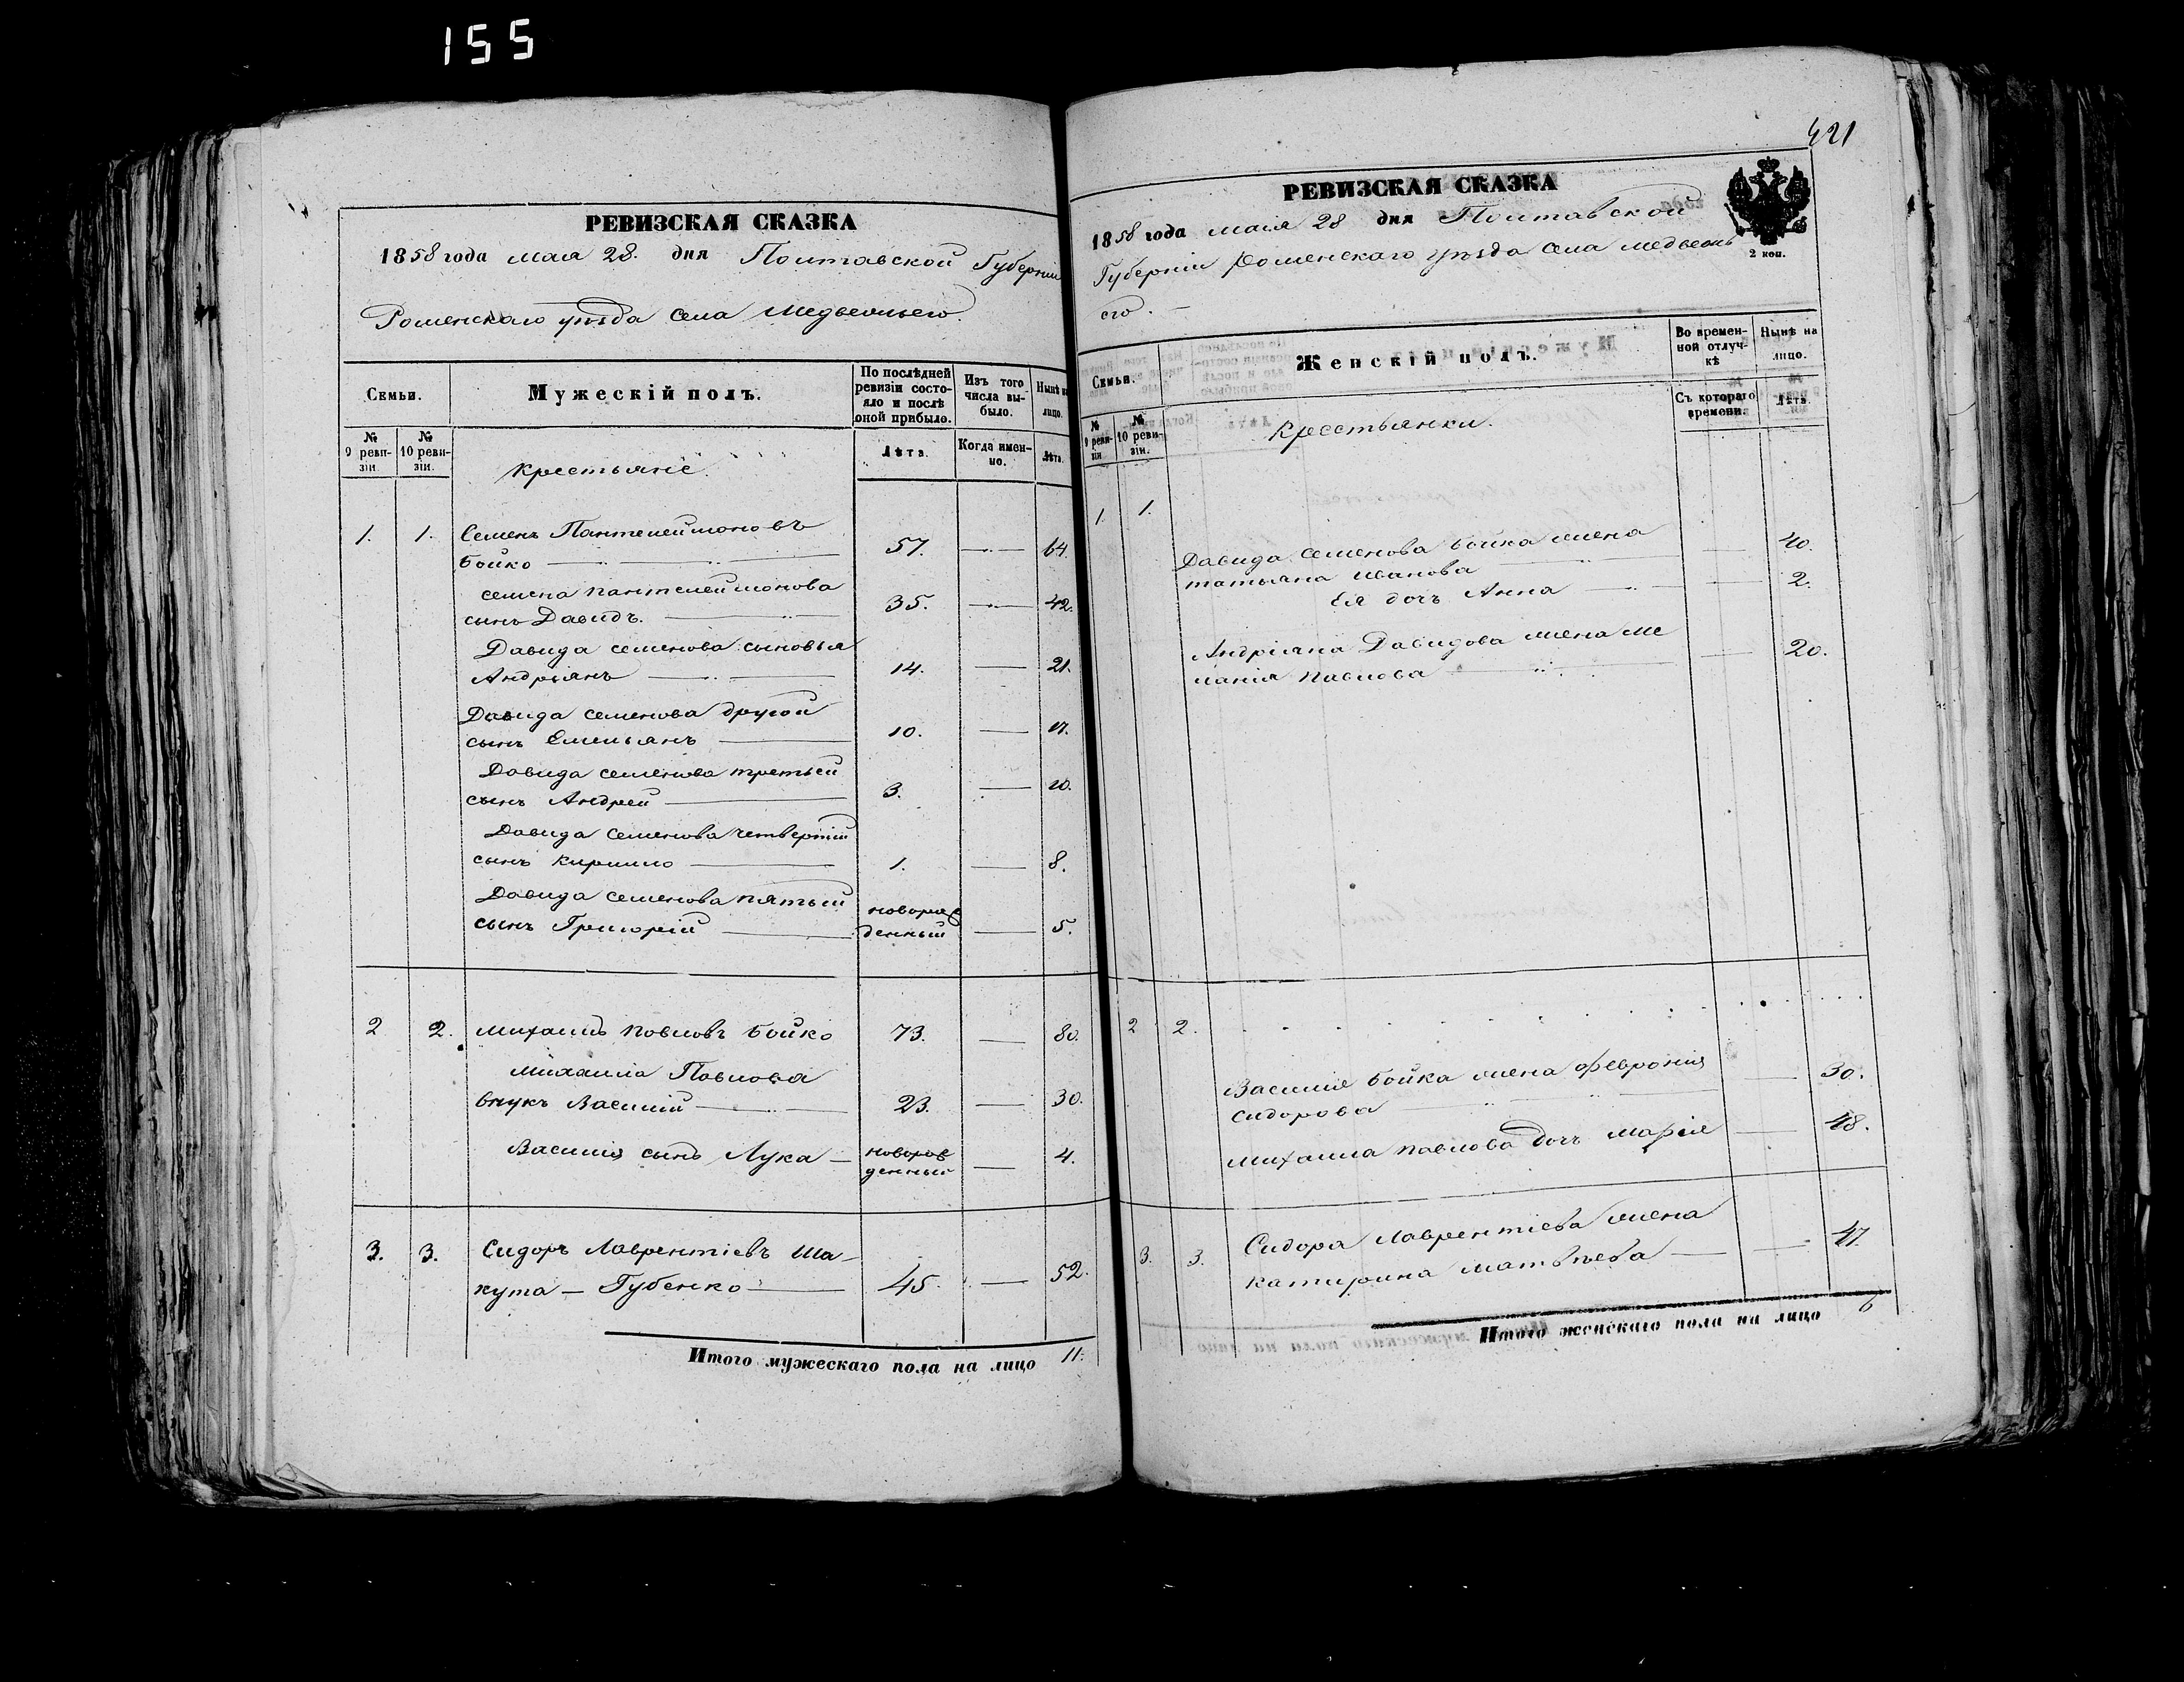 155
РЕВИЗСКАЯ СКАЗКА
1858 года мая 28. дня Полтавской Губерніи
Роменскаго уѣзда села Медвежьего.
Семьи.
Мужескій полъ.
По послѣдней ревизіи состояло и послѣ оной прибыло.
Изъ того числа выбыло.
Нынѣ на лицо.
№ 9 ревизіи.
№ 10 ревизіи.
крестьяне.
Лѣта.
Когда именно.
Лѣта.
1. 1. Семенъ Пантелеймоновъ
Бойко 57. 64.
семена пантелеймонова
сынъ Давидъ. 35. 42.
Давида семенова сыновья
Андріянъ 14. 21.
Давида семенова другой
сынъ Емельянъ 10. 17.
Давида семенова третьей
сынъ Андрей 3. 10.
Давида семенова четвертій
сынъ Кирилло 1. 8.
Давида семенова пятый новорож
сынъ Григорій денный 5.
2 2. Михаилъ павловъ Бойко 73. 80.
Михаила Павлова
внукъ Василій 23. 30.
Василія сынъ Лука новорож
денный 4.
3. 3. Сидоръ Лаврентіевъ Ша-
кута - Губенко 45. 52.
Итого мужескаго пола на лицо 11.
421
РЕВИЗСКАЯ СКАЗКА
1858 года маія 28 дня Полтавской
Губерніи Роменскаго уѣзда села медвежь
его.
2 коп.
Семьи.
Женскій полъ.
Во временной отлучкѣ
Нынѣ на лицо.
№ 9 ревизіи
№ 10 ревизіи.
крестьянки.
Съ котораго времени.
Лѣта.
1. 1.
Давида семенова бойка жена
татьяна иванова 40.
Ея дочь Анна 2.
Андріяна Давидова жена ме
ланія павлова 20.
2 2.
Василія бойка жена феврония
сидорова 30.
Михаила павлова дочь марія 48.
3. 3. Сидора Лаврентіева жена
катирина матвѣева 47.
Итого женскаго пола на лицо 6